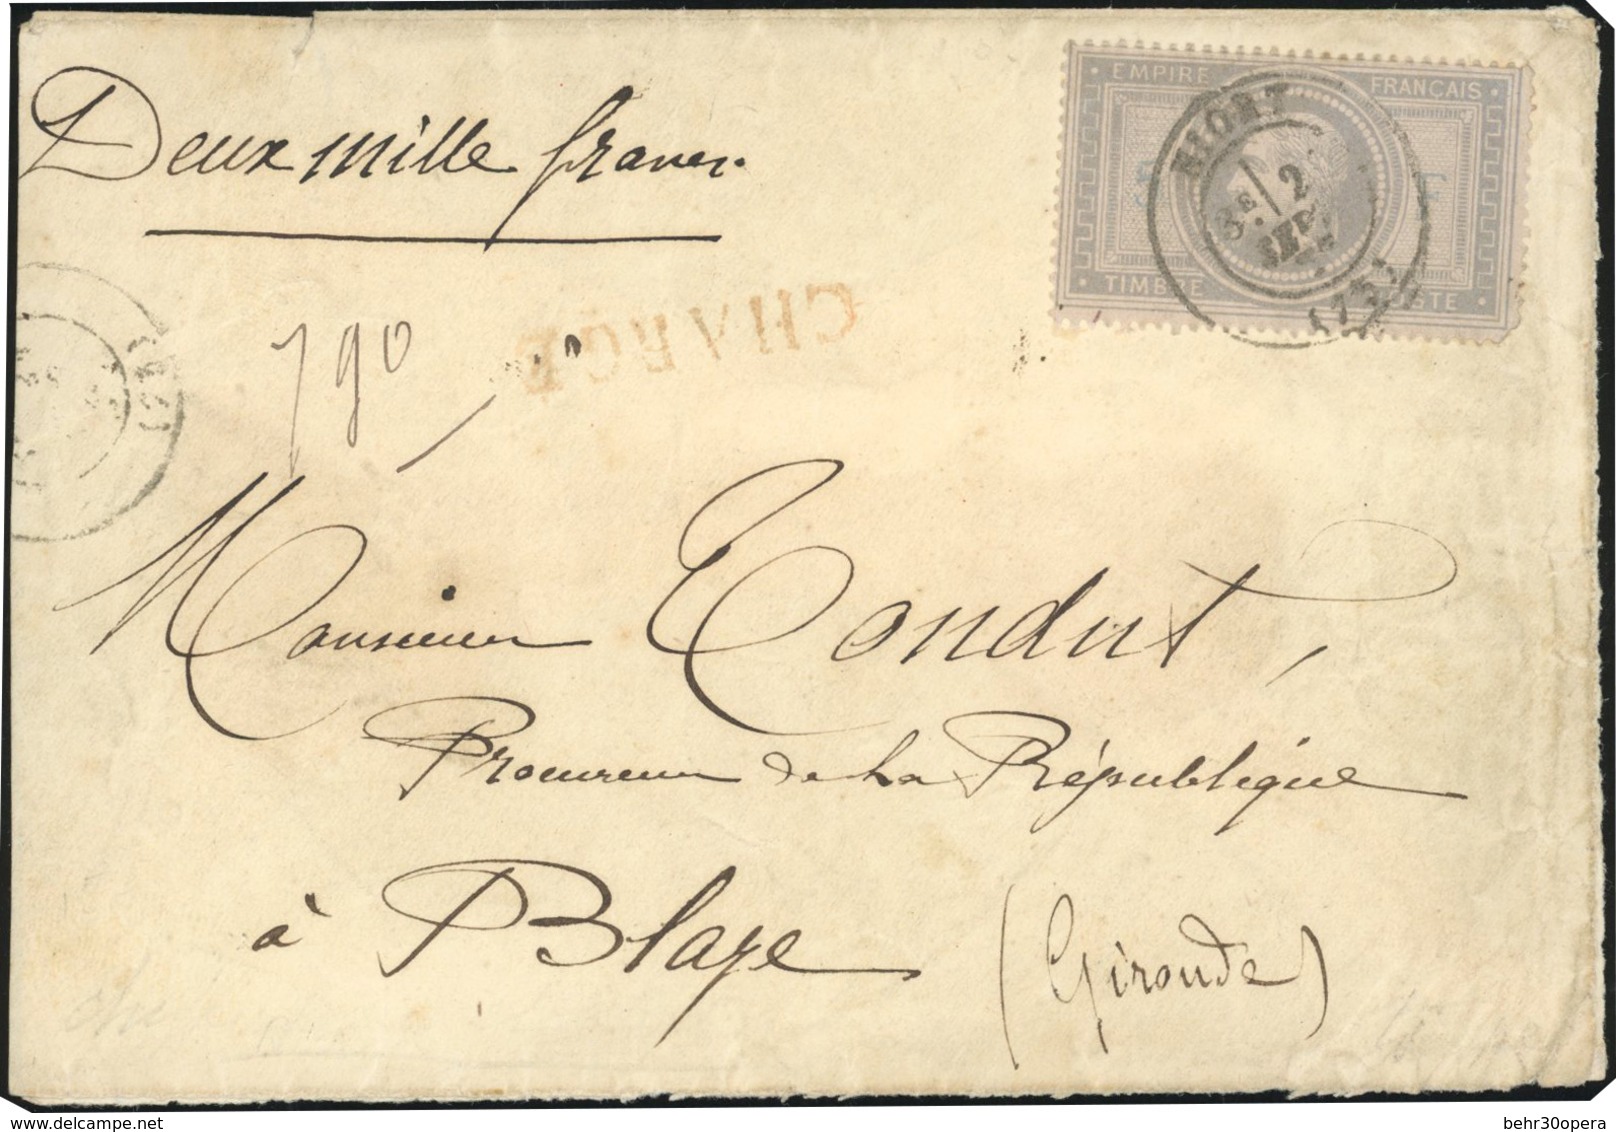 Deux mille francs.
EMPIRE FRANÇAIS
TIMBRE
NIORT
3E 2
SEPT
(75)
CHARGÉ
790
Monsieur Condut,
Procureur de la République
à Blaye (Gironde)
behr30opera